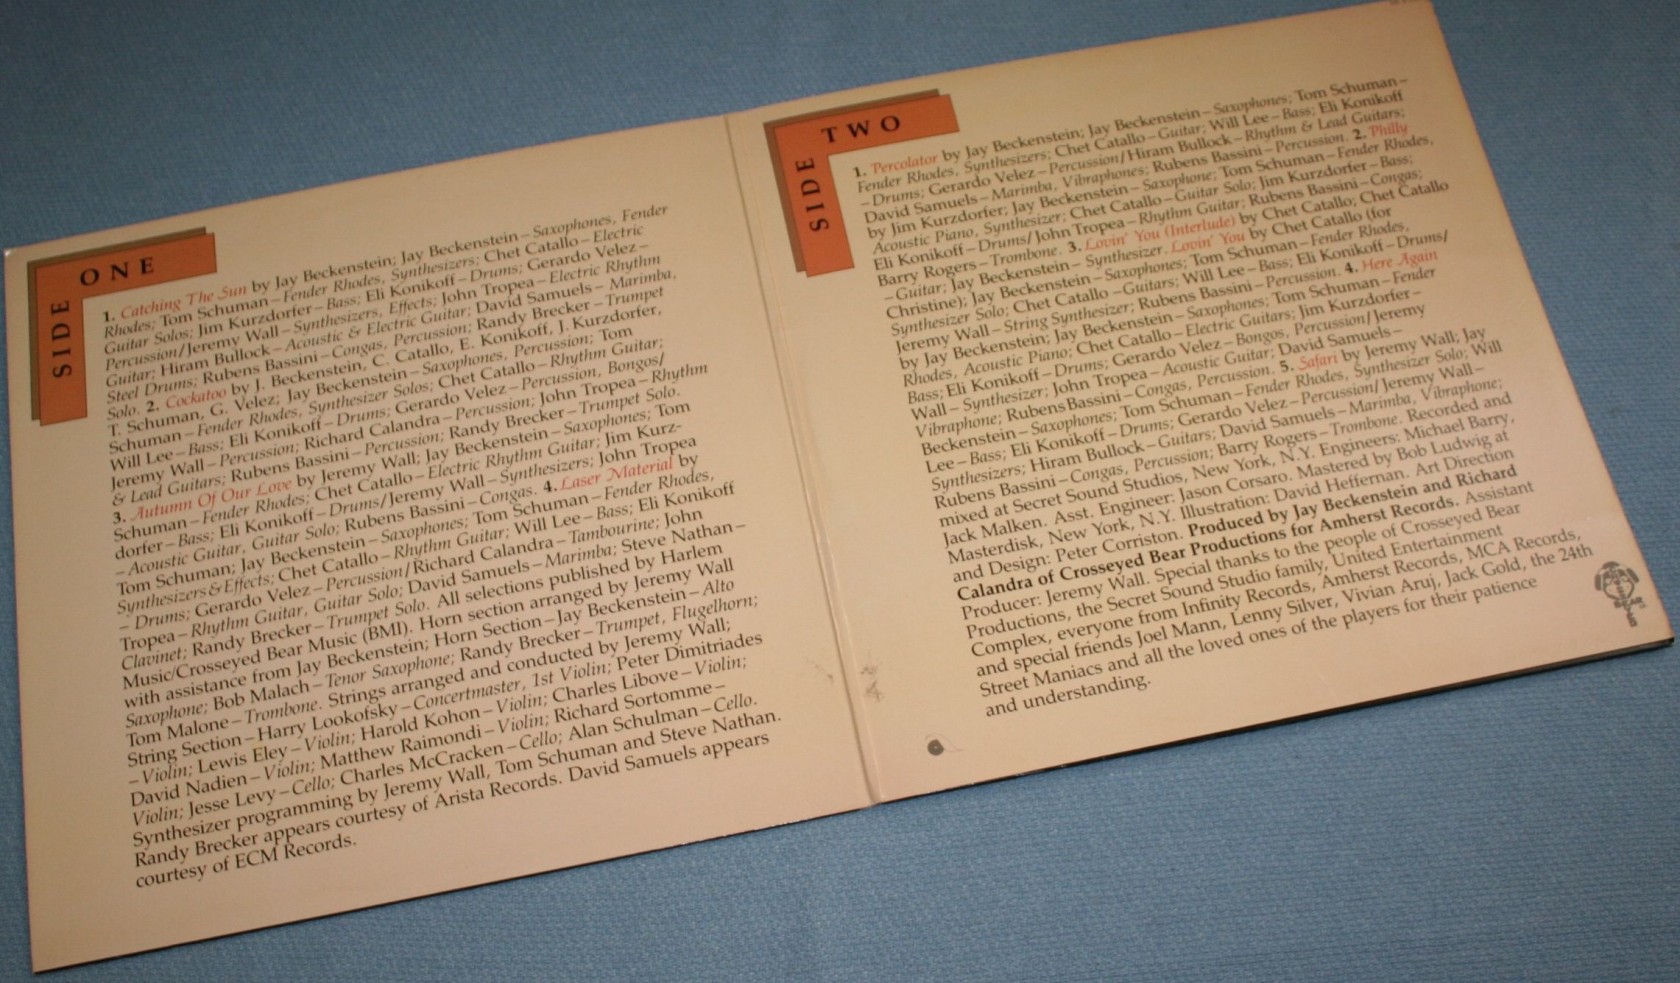 SIDE ONE
1. Catching The Sun by Jay Beckenstein; Jay Beckenstein – Saxophones, Fender
Rhodes; Tom Schuman – Fender Rhodes, Synthesizers; Chet Catallo – Electric
Guitar Solos; Jim Kurzdorfer – Bass; Eli Konikoff – Drums; Gerardo Velez –
Percussion/Jeremy Wall – Synthesizers, Effects; John Tropea – Electric Rhythm
Guitar; Hiram Bullock – Acoustic & Electric Guitar; David Samuels – Marimba,
Steel Drums; Rubens Bassini – Congas, Percussion; Randy Brecker – Trumpet
Solo. 2. Cockatoo by J. Beckenstein, C. Catallo, E. Konikoff, J. Kurzdorfer,
T. Schuman, G. Velez; Jay Beckenstein – Saxophones, Percussion; Tom
Schuman – Fender Rhodes, Synthesizer Solos; Chet Catallo – Rhythm Guitar;
Will Lee – Bass; Eli Konikoff – Drums; Gerardo Velez – Percussion, Bongos/
Jeremy Wall – Percussion; Richard Calandra – Percussion; John Tropea – Rhythm
& Lead Guitars; Rubens Bassini – Percussion; Randy Brecker – Trumpet Solo.
3. Autumn Of Our Love by Jeremy Wall; Jay Beckenstein – Saxophones; Tom
Schuman – Fender Rhodes; Chet Catallo – Electric Rhythm Guitar; Jim Kurz-
dorfer – Bass; Eli Konikoff – Drums/Jeremy Wall – Synthesizers; John Tropea
– Acoustic Guitar, Guitar Solo; Rubens Bassini – Congas. 4. Laser Material by
Tom Schuman; Jay Beckenstein – Saxophones; Tom Schuman – Fender Rhodes,
Synthesizers & Effects; Chet Catallo – Rhythm Guitar; Will Lee – Bass; Eli Konikoff
– Drums; Gerardo Velez – Percussion/Richard Calandra – Tambourine; John
Tropea – Rhythm Guitar, Guitar Solo; David Samuels – Marimba; Steve Nathan –
Clavinet; Randy Brecker – Trumpet Solo. All selections published by Harlem
Music/Crosseyed Bear Music (BMI). Horn section arranged by Jeremy Wall
with assistance from Jay Beckenstein; Horn Section – Jay Beckenstein – Alto
Saxophone; Bob Malach – Tenor Saxophone; Randy Brecker – Trumpet, Flugelhorn;
Tom Malone – Trombone. Strings arranged and conducted by Jeremy Wall;
String Section – Harry Lookofsky – Concertmaster, 1st Violin; Peter Dimitriades
– Violin; Lewis Eley – Violin; Harold Kohon – Violin; Charles Libove – Violin;
David Nadien – Violin; Matthew Raimondi – Violin; Richard Sortomme –
Violin; Jesse Levy – Cello; Charles McCracken – Cello; Alan Schulman – Cello.
Synthesizer programming by Jeremy Wall, Tom Schuman and Steve Nathan.
Randy Brecker appears courtesy of Arista Records. David Samuels appears
courtesy of ECM Records.
SIDE TWO
1. Percolator by Jay Beckenstein; Jay Beckenstein – Saxophones; Tom Schuman –
Fender Rhodes, Synthesizers; Chet Catallo – Guitar; Will Lee – Bass; Eli Konikoff
– Drums; Gerardo Velez – Percussion/Hiram Bullock – Rhythm & Lead Guitars;
David Samuels – Marimba, Vibraphones; Rubens Bassini – Percussion. 2. Philly
by Jim Kurzdorfer; Jay Beckenstein – Saxophone; Tom Schuman – Fender Rhodes,
Acoustic Piano, Synthesizer; Chet Catallo – Guitar Solo; Jim Kurzdorfer – Bass;
Eli Konikoff – Drums/John Tropea – Rhythm Guitar; Rubens Bassini – Congas;
Barry Rogers – Trombone. 3. Lovin' You (Interlude) by Chet Catallo; Chet Catallo
– Guitar; Jay Beckenstein – Synthesizer. Lovin' You by Chet Catallo (for
Christine); Jay Beckenstein – Saxophones; Tom Schuman – Fender Rhodes,
Synthesizer Solo; Chet Catallo – Guitars; Will Lee – Bass; Eli Konikoff – Drums/
Jeremy Wall – String Synthesizer; Rubens Bassini – Percussion. 4. Here Again
by Jay Beckenstein; Jay Beckenstein – Saxophones; Tom Schuman – Fender
Rhodes, Acoustic Piano; Chet Catallo – Electric Guitars; Jim Kurzdorfer –
Bass; Eli Konikoff – Drums; Gerardo Velez – Bongos, Percussion/Jeremy
Wall – Synthesizer; John Tropea – Acoustic Guitar; David Samuels –
Vibraphone; Rubens Bassini – Congas, Percussion. 5. Safari by Jeremy Wall; Jay
Beckenstein – Saxophones; Tom Schuman – Fender Rhodes, Synthesizer Solo; Will
Lee – Bass; Eli Konikoff – Drums; Gerardo Velez – Percussion/Jeremy Wall –
Synthesizers; Hiram Bullock – Guitars; David Samuels – Marimba, Vibraphone;
Rubens Bassini – Congas, Percussion; Barry Rogers – Trombone. Recorded and
mixed at Secret Sound Studios, New York, N.Y. Engineers: Michael Barry,
Jack Malken. Asst. Engineer: Jason Corsaro. Mastered by Bob Ludwig at
Masterdisk, New York, N.Y. Illustration: David Heffernan. Art Direction
and Design: Peter Corriston. Produced by Jay Beckenstein and Richard
Calandra of Crosseyed Bear Productions for Amherst Records. Assistant
Producer: Jeremy Wall. Special thanks to the people of Crosseyed Bear
Productions, the Secret Sound Studio family, United Entertainment
Complex, everyone from Infinity Records, Amherst Records, MCA Records,
and special friends Joel Mann, Lenny Silver, Vivian Aruj, Jack Gold, the 24th
Street Maniacs and all the loved ones of the players for their patience
and understanding.